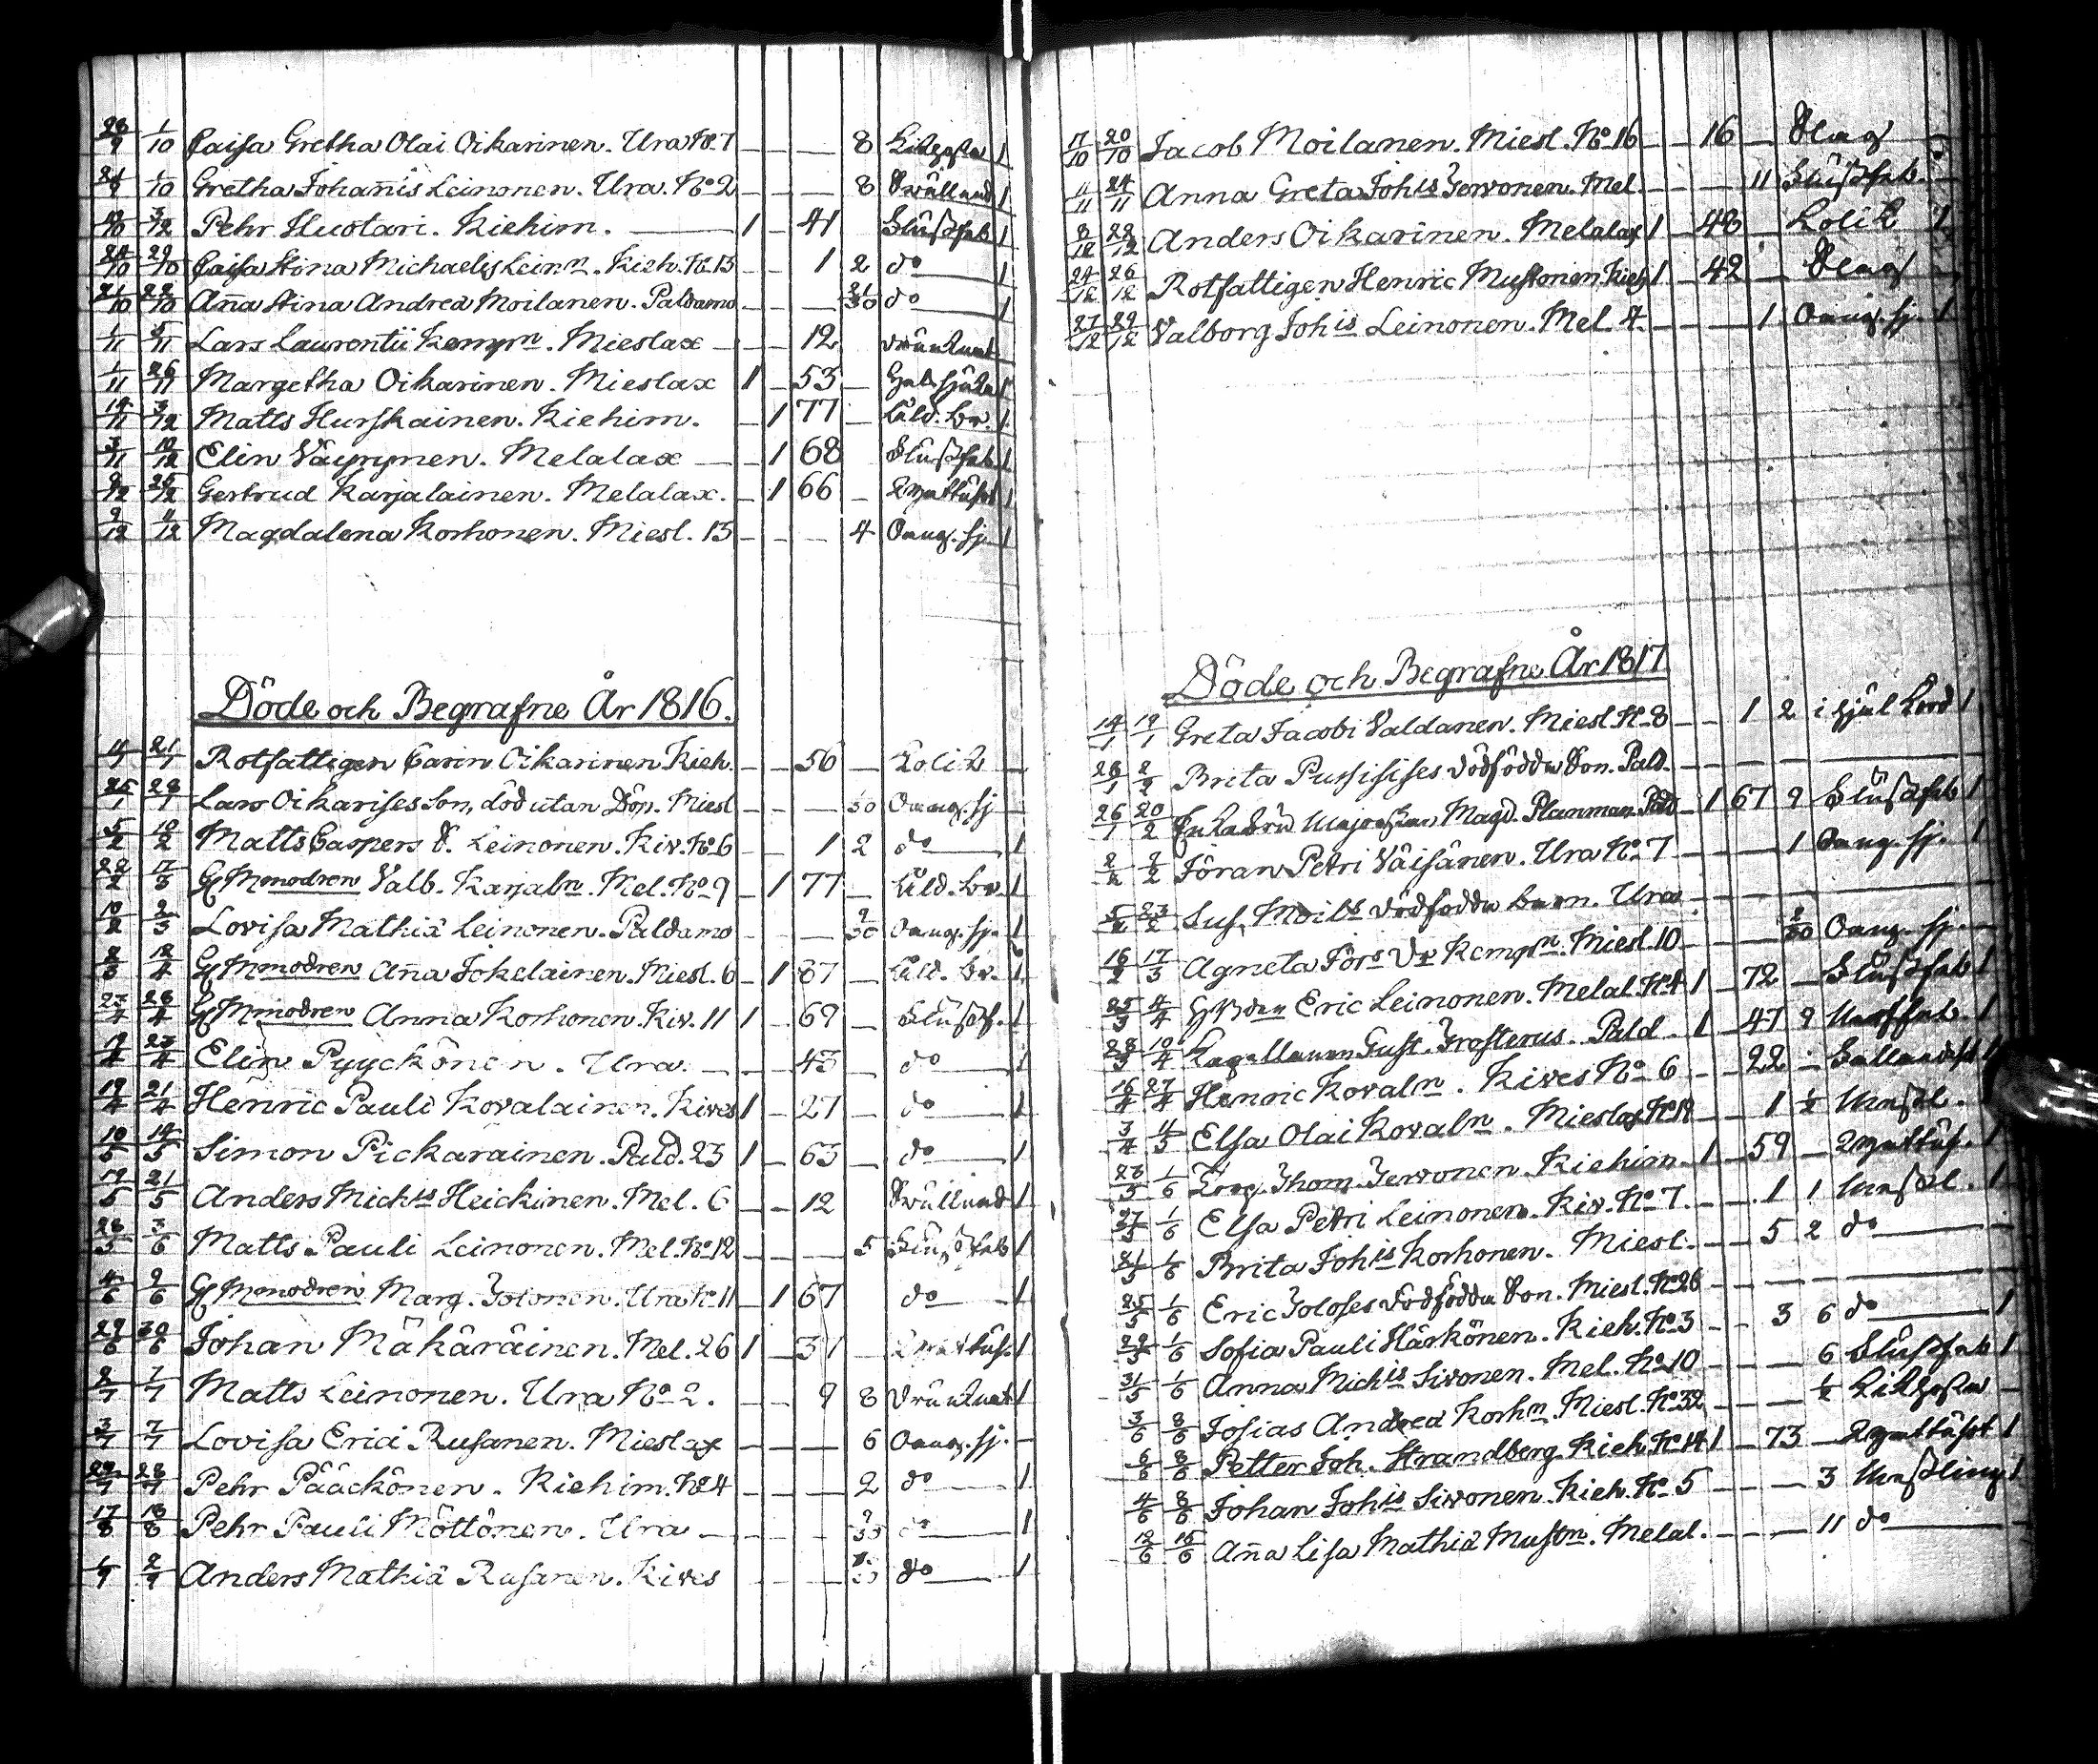 28/9 1/10 Caisa Gretha Olai Oikarinen. Ura No 7 — — — 8 Kikhosta 1
24/9 1/10 Gretha Johañis Leinonen. Ura. No 2 — — — 8 Swullnad 1
3/12 Pehr Huotari. Kiehim. — 1 — 41 Flussfeb 1
24/10 29/10 Caisa Stina Michaelis Lein n. Kieh. No 13 — — 1 2 do — 1
21/10 22/10 Aña Stina Andreæ Moilanen. Paldamo — — — 21/30 do — 1
1/11 5/11 Lars Laurentii Kemp n. Mieslax — — — 12 drunknat
1/11 26/11 Margetha Oikarinen. Mieslax 1 — 53 — 1
14/11 3/12 Matts Hurskainen. Kiehim. — 1 77 — Åld. br. 1
3/11 10/12 Elin Väyrynen. Melalax — — 1 68 Flussfeb 1
8/12 26/12 Gertrud Karjalainen. Melalax. — 1 66 — 1
9/12 11/12 Magdalena Korhonen. Miesl. 13 — — — 4 Oang. sj. 1
Döde och Begrafne År 1816.
21/1 Rotfattigen Carin Oikarinen Kieh. — — 56 — Kolik —
25/1 28/1 Lars Oikarises Son, död utan Döp. Miesl — — — Oang. sj —
5/2 10/2 Matts Caspers S. Leinonen. Kiv. No 6 — — 1 2 do — 1
22/2 17/3 Gl Mmodren Valb. Karjal n. Mel. No 9 — 1 77 — Åld. br. 1
10/2 2/3 Lovisa Mathiæ Leinonen. Paldamo — — — 9/30 Oang. sj. 1
2/3 12/4 Gl Mmodren Aña Jokelainen. Miesl. 6 — 1 87 — Åld. br. 1
23/4 28/4 Gl Mmodren Anna Korhonen. Kiv. 11 1 — 69 — Flussf. 1
9/4 23/4 Elin Pyyckönen. Ura. — — 43 — do — 1
19/4 21/4 Henric Pauli Kovalainen. Kives 1 — 27 — do — 1
10/5 14/5 Simon Pickarainen. Pald. 23 1 — 63 — do — 1
19/5 21/5 Anders Mich is Heickinen. Mel. 6 — — 12 Swullnad 1
28/5 3/6 Matts Pauli Leinonen. Mel. No 12 — — — 5 Flussfeb 1
4/6 9/6 Gl Mmodren Marg. Jolonen. Ura No 11 — 1 67 do — 1
29/6 30/6 Johan Mäkäräinen. Mel. 26 1 — 31 1
2/7 7/7 Matts Leinonen. Ura No 2. — — 9 8 drunknat 1
3/7 7/7 Lovisa Erici Rusanen. Mieslax — — — 6 Oang. sj. —
22/7 28/7 Pehr Pääckönen. Kiehim. No 4 — — — 2 do — 1
17/8 18/8 Pehr Pauli Möttönen. Ura — — — — do — 1
1/9 2/9 Anders Mathiæ Rusanen. Kives — — — do — 1
17/10 20/10 Jacob Moilanen. Miesl. No 16 — — 16 — Slag
4/11 24/11 Anna Greta Joh is Jervonen. Mel. — — — 11 Flussfeb. —
8/12 22/12 Anders Oikarinen. Melalax 1 — 48 — Kolik 1
24/12 26/12 Rotfattigen Henric Mustonen. Kieh 1 — 42 — Slag —
27/12 29/12 Valborg Joh is Leinonen. Mel. 4. — — — 1 Oang. sj. 1
Döde och Begrafne År 1817
14/1 19/1 Greta Jacobi Valdanen. Miesl. No 8 — — 1 2 1
28/1 2/2 Brita Pussisises dödfödda Son. Pald. — — — —
26/1 20/2 Enkefru Majorskan Magd. Planman. Pald — 1 67 9 Flussfeb 1
2/2 9/2 Jöran Petri Väisänen. Ura No 7 — — — 1 Oang. sj. 1
5/2 23/2 Sus. Moil s dödfödda barn. Ura — — — —
16/2 17/3 Agneta Jörs Dr Kemp n. Miesl. 10 — — — Oang. sj. —
25/3 4/4 Eric Leinonen. Melal. No 4 1 — 72 — Flussfeb 1
28/3 10/4 Kapellanen Gust. Frosterus. Pald. 1 — 47 9 1
16/4 27/4 Henric Koval n. Kives No 6 — — 22 — 1
3/4 11/5 Elsa Olai Koval n. Mieslax No 19 — — 1 1/2 Messl. 1
28/5 1/6 Thom. Jervonen. Kiehim. — 1 — 59 — 1
27/5 1/6 Elsa Petri Leinonen. Kiv. No 7. — — 1 1 Messl. 1
21/5 1/6 Brita Joh is Korhonen. Miesl. — — 5 2 do —
25/5 1/6 Eric Joloses dödfödda Son. Miesl. No 26 — — — —
29/5 1/6 Sofia Pauli Härkönen. Kieh. No 3 — — 3 6 do — 1
31/5 1/6 Anna Mich is Sivonen. Mel. No 10 — — — 6 Flussfeb 1
3/6 8/6 Josias Andreæ Korh n. Miesl. No 32 — — — 1/2 Kikhosta —
6/6 8/6 Petter Joh. Strandberg. Kieh. No 14 1 — 73 — 1
4/6 8/6 Johan Joh is Sivonen. Kieh. No 5 — — — 3 Messling 1
12/6 15/6 Aña Lisa Mathiæ Must n. Melal. — — — 11 do —